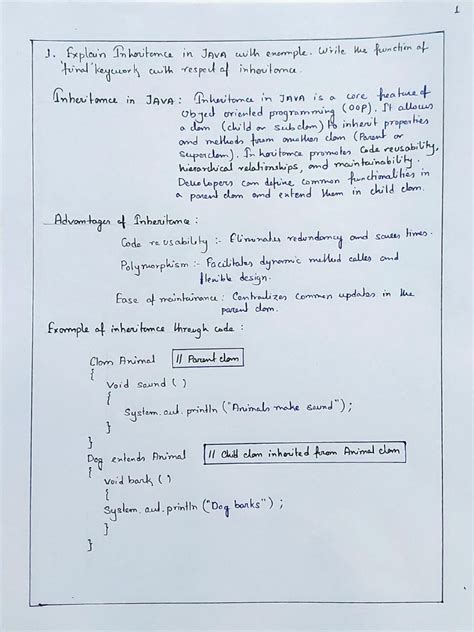 1
1. Explain Inheritance in JAVA with example. Write the function of
'final' keywork with respect of inheritance.
Inheritance in JAVA : Inheritance in JAVA is a core feature of
Object oriented programming (OOP). It allows
a class (child or subclass) to inherit properties
and methods from another class (Parent or
Superclass). Inheritance promotes code reusability,
hierarchical relationships, and maintainability.
Developers can define common functionalities in
a parent class and extend them in child class.
Advantages of Inheritance :
Code reusability :- Eliminates redundancy and saves times.
Polymorphism :- Facilitates dynamic method calls and
flexible design.
Ease of maintainance : Centralizes common updates in the
parent class.
Example of inheritance through code :
Class Animal // Parent class
{
Void sound ( )
{
System.out.println ("Animals make sound") ;
}
}
Dog extends Animal // Child class inherited from Animal class
{
Void bark ( )
{
System.out.println ("Dog barks") ;
}
}